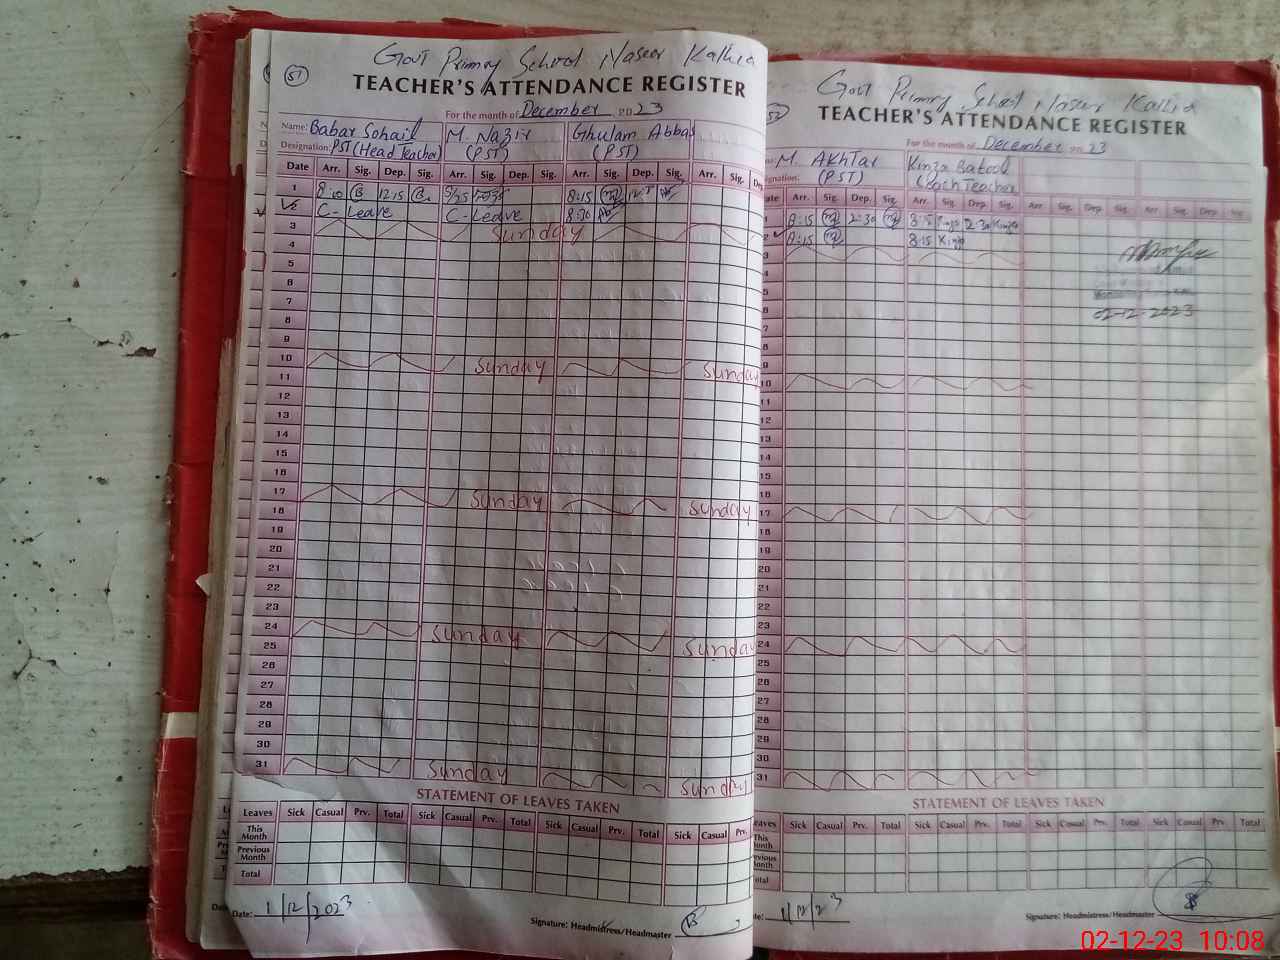 51
Govt Primary School Naseer Kalhia
TEACHER'S ATTENDANCE REGISTER
For the month of December 2023
Name: Babar Sohail M. Nazir Ghulam Abbas
Designation: PST (Head Teacher) (PST) (PST)
Date Arr. Sig. Dep. Sig. Arr. Sig. Dep. Sig. Arr. Sig. Dep. Sig. Arr. Sig. Dep.
1 8:10 B 12:15 B 8:15
2 C-Leave C-Leave 8:30
3 Sunday
4
5
6
7
8
9
10 Sunday Sunday
11
12
13
14
15
16
17 Sunday Sunday
18
19
20
21
22
23
24 Sunday Sunday
25
26
27
28
29
30
31 Sunday Sunday
STATEMENT OF LEAVES TAKEN
Leaves Sick Casual Prv. Total Sick Casual Prv. Total Sick Casual Prv. Total Sick Casual Prv.
This Month
Previous Month
Total
Date: 1/12/2023
Signature: Headmistress/Headmaster B
52
Govt Primary School Naseer Kalhia
TEACHER'S ATTENDANCE REGISTER
For the month of December 2023
M. Akhtar Kinza Batool
signation: (PST) (Coach Teacher
ate Arr. Sig. Dep. Sig. Arr. Sig. Dep. Sig. Arr. Sig. Dep. Sig. Arr. Sig. Dep. Sig.
1 8:15 2:30 8:15 Kinza 2:30 Kinza
2 8:15 8:15 Kinza
3
4
5
6
7
8
9
10
11
12
13
14
15
16
17
18
19
20
21
22
23
24
25
26
27
28
29
30
31
02-12-2023
STATEMENT OF LEAVES TAKEN
eaves Sick Casual Prv. Total Sick Casual Prv. Total Sick Casual Prv. Total Sick Casual Prv. Total
This Month
revious Month
Total
te: 1/12/23
Signature: Headmistress/Headmaster
02-12-23 10:08